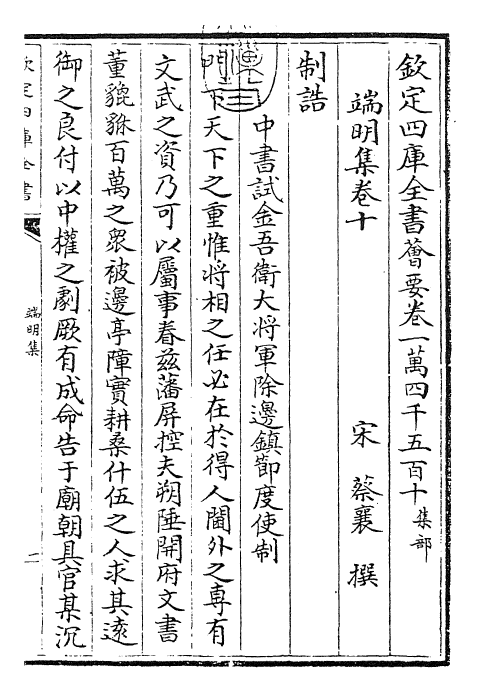 欽定四庫全書薈要卷一萬四千五百十集部
端明集卷十
宋 蔡襄 撰
制誥
中書試金吾衛大將軍除邊鎮節度使制
門下天下之重惟將相之任必在於得人閫外之専有
文武之資乃可以屬事眷兹藩屏控夫朔陲開府文書
董貔貅百萬之衆被邊亭障實耕桑什伍之人求其逺
御之良付以中權之劇厥有成命告于廟朝具官某沉
欽定四庫全書
端明集